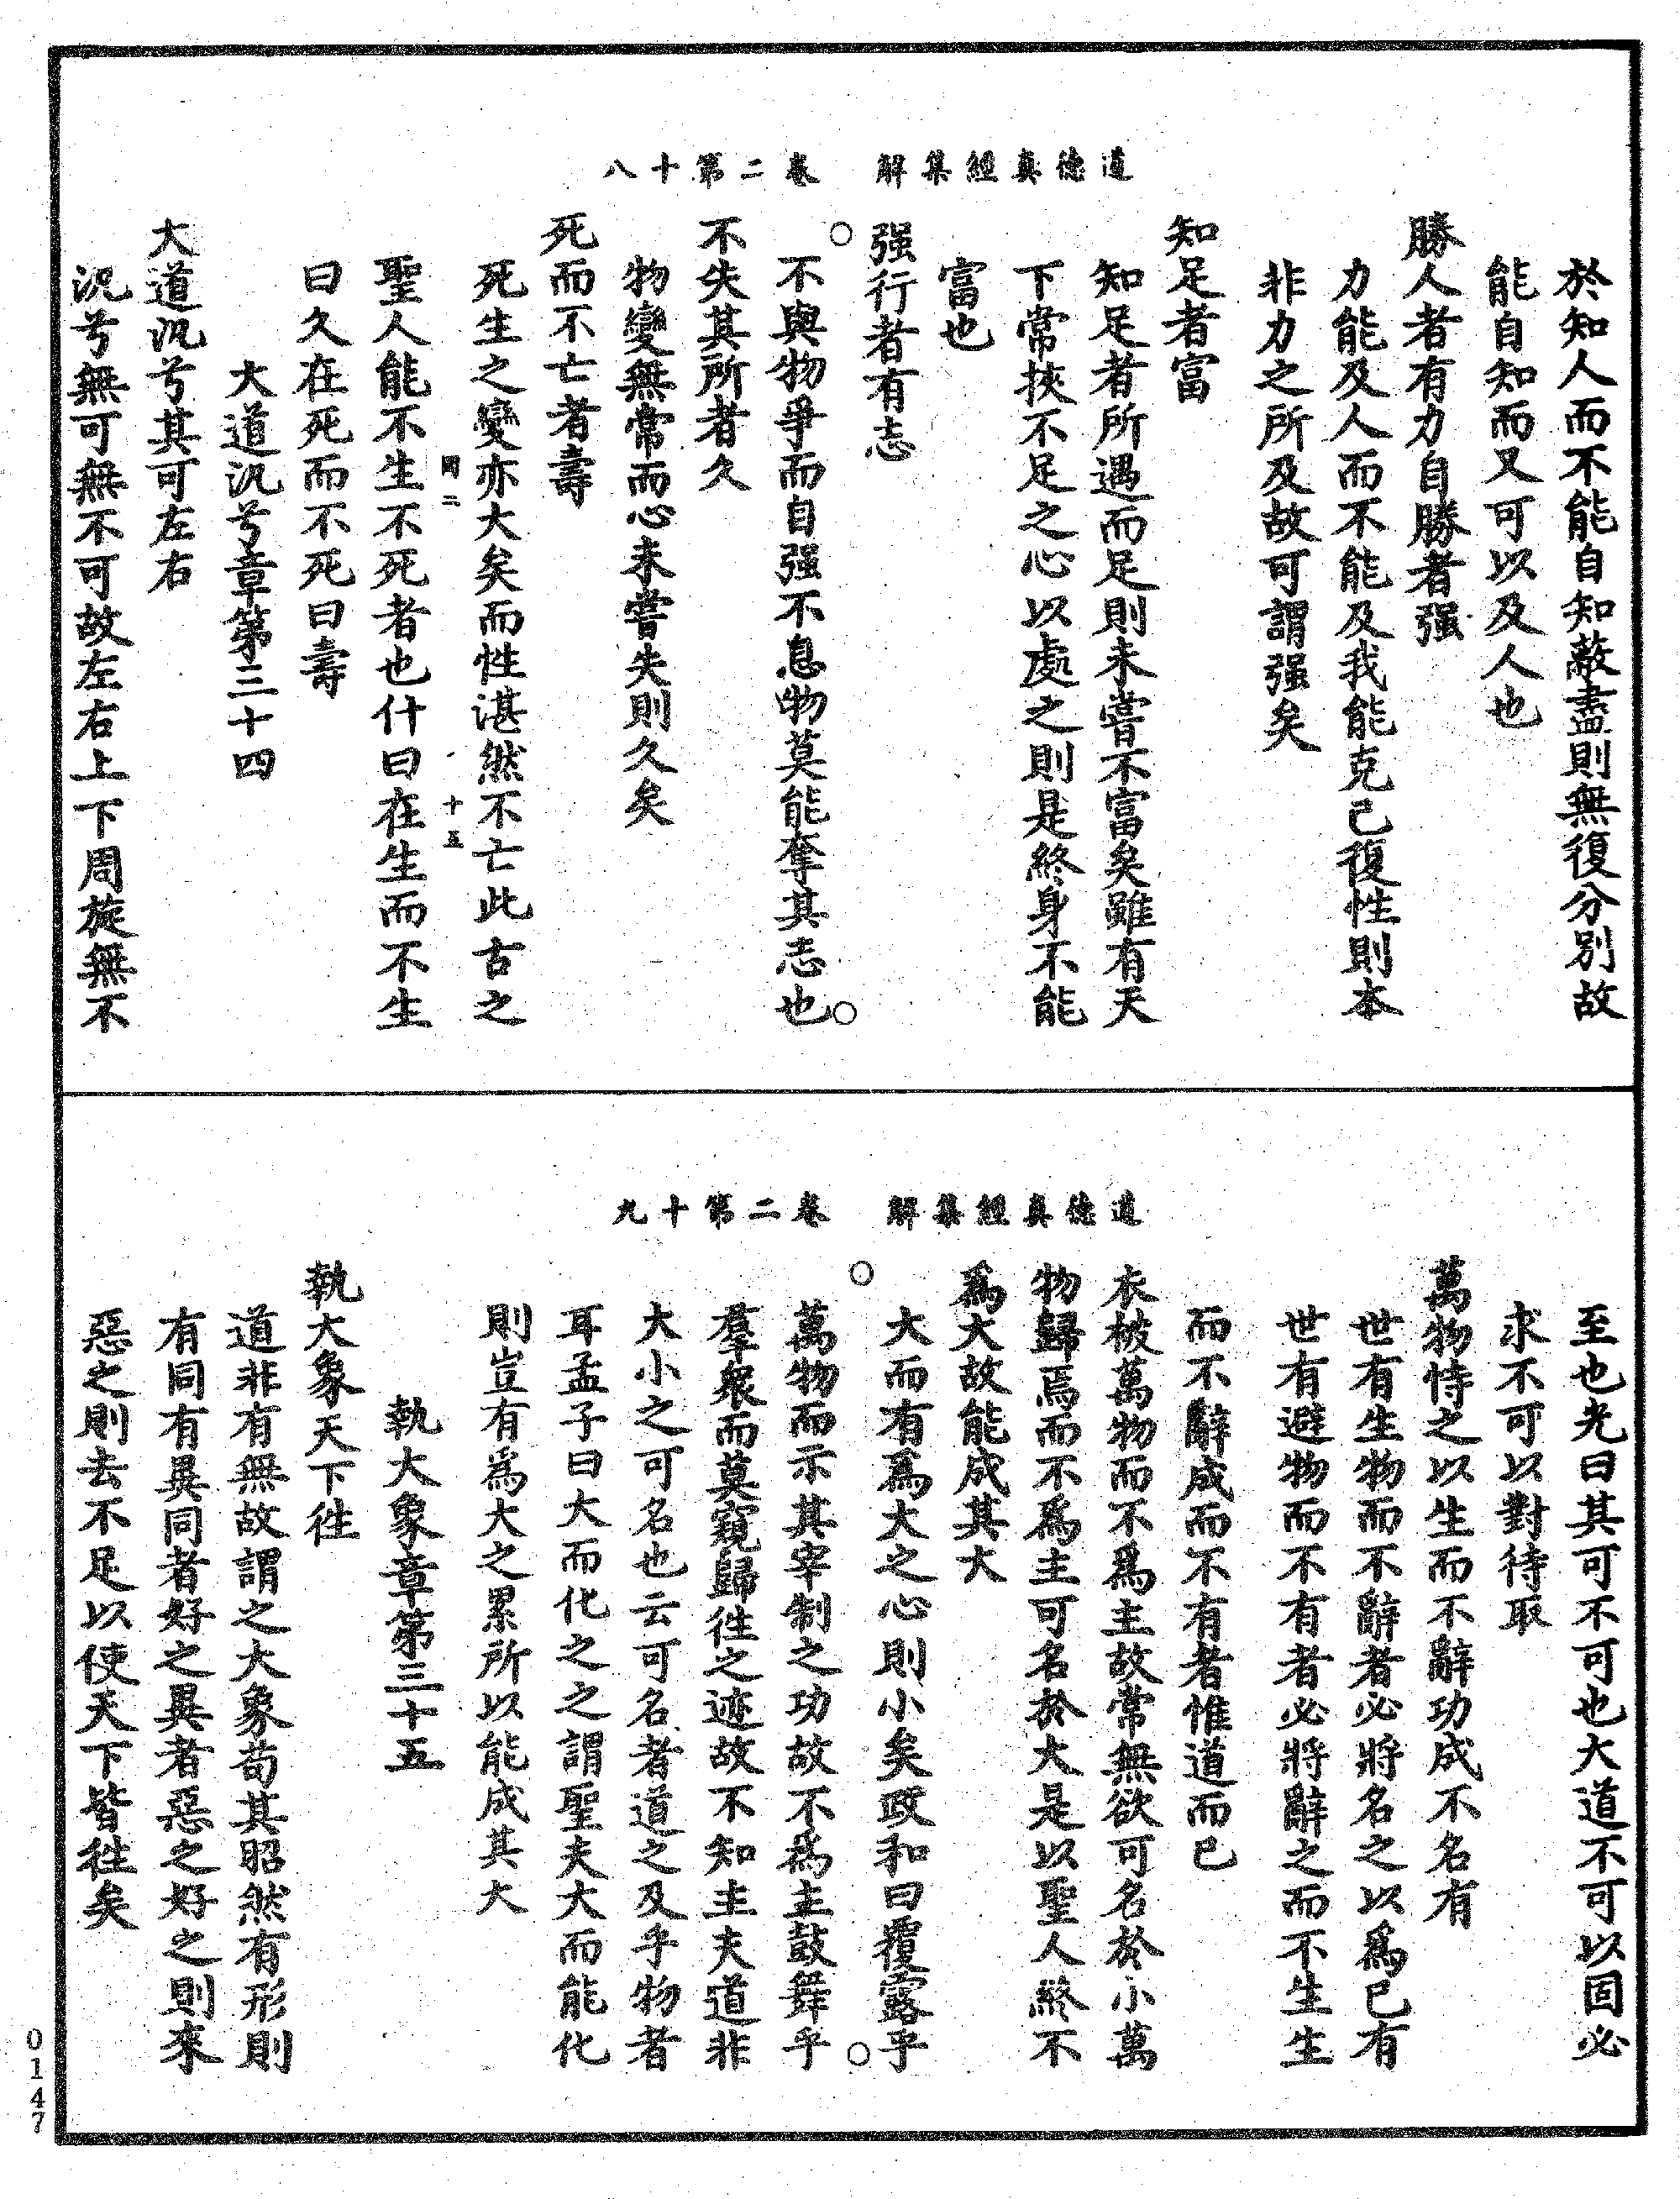 道德真經集解　卷二第十八
於知人而不能自知蔽盡則無復分別故
能自知而又可以及人也
勝人者有力自勝者强
力能及人而不能及我能克己復性則本
非力之所及故可謂强矣
知足者富
知足者所遇而足則未嘗不富矣雖有天
下常挾不足之心以處之則是終身不能
富也
强行者有志
不與物爭而自强不息物莫能奪其志也
不失其所者久
物變無常而心未嘗失則久矣
死而不亡者壽
死生之變亦大矣而性湛然不亡此古之
十五
聖人能不生不死者也什曰在生而不生
曰久在死而不死曰壽
大道汎兮章第三十四
大道汎兮其可左右
汎兮無可無不可故左右上下周旋無不
道德真經集解　卷二第十九
至也光曰其可不可也大道不可以固必
求不可以對待取
萬物恃之以生而不辭功成不名有
世有生物而不辭者必將名之以爲已有
世有避物而不有者必將辭之而不生生
而不辭成而不有者惟道而已
衣被萬物而不爲主故常無欲可名於小萬
物歸焉而不爲主可名於大是以聖人終不
爲大故能成其大
大而有爲大之心則小矣政和曰覆露乎
萬物而示其宰制之功故不爲主鼓舞乎
羣衆而莫窺歸徃之迹故不知主夫道非
大小之可名也云可名者道之及乎物者
耳孟子曰大而化之之謂聖夫大而能化
則豈有爲大之累所以能成其大
執大象章第三十五
執大象天下徃
道非有無故謂之大象苟其昭然有形則
有同有異同者好之異者惡之好之則來
惡之則去不足以使天下皆徃矣
0147